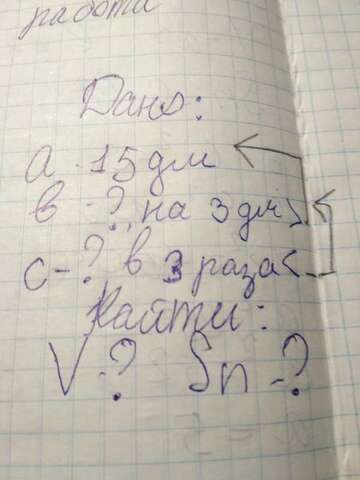 работа
Дано:
a - 15 дм
в - ? на 3 дм >
c - ? в 3 раза <
Найти:
V - ? Sп - ?